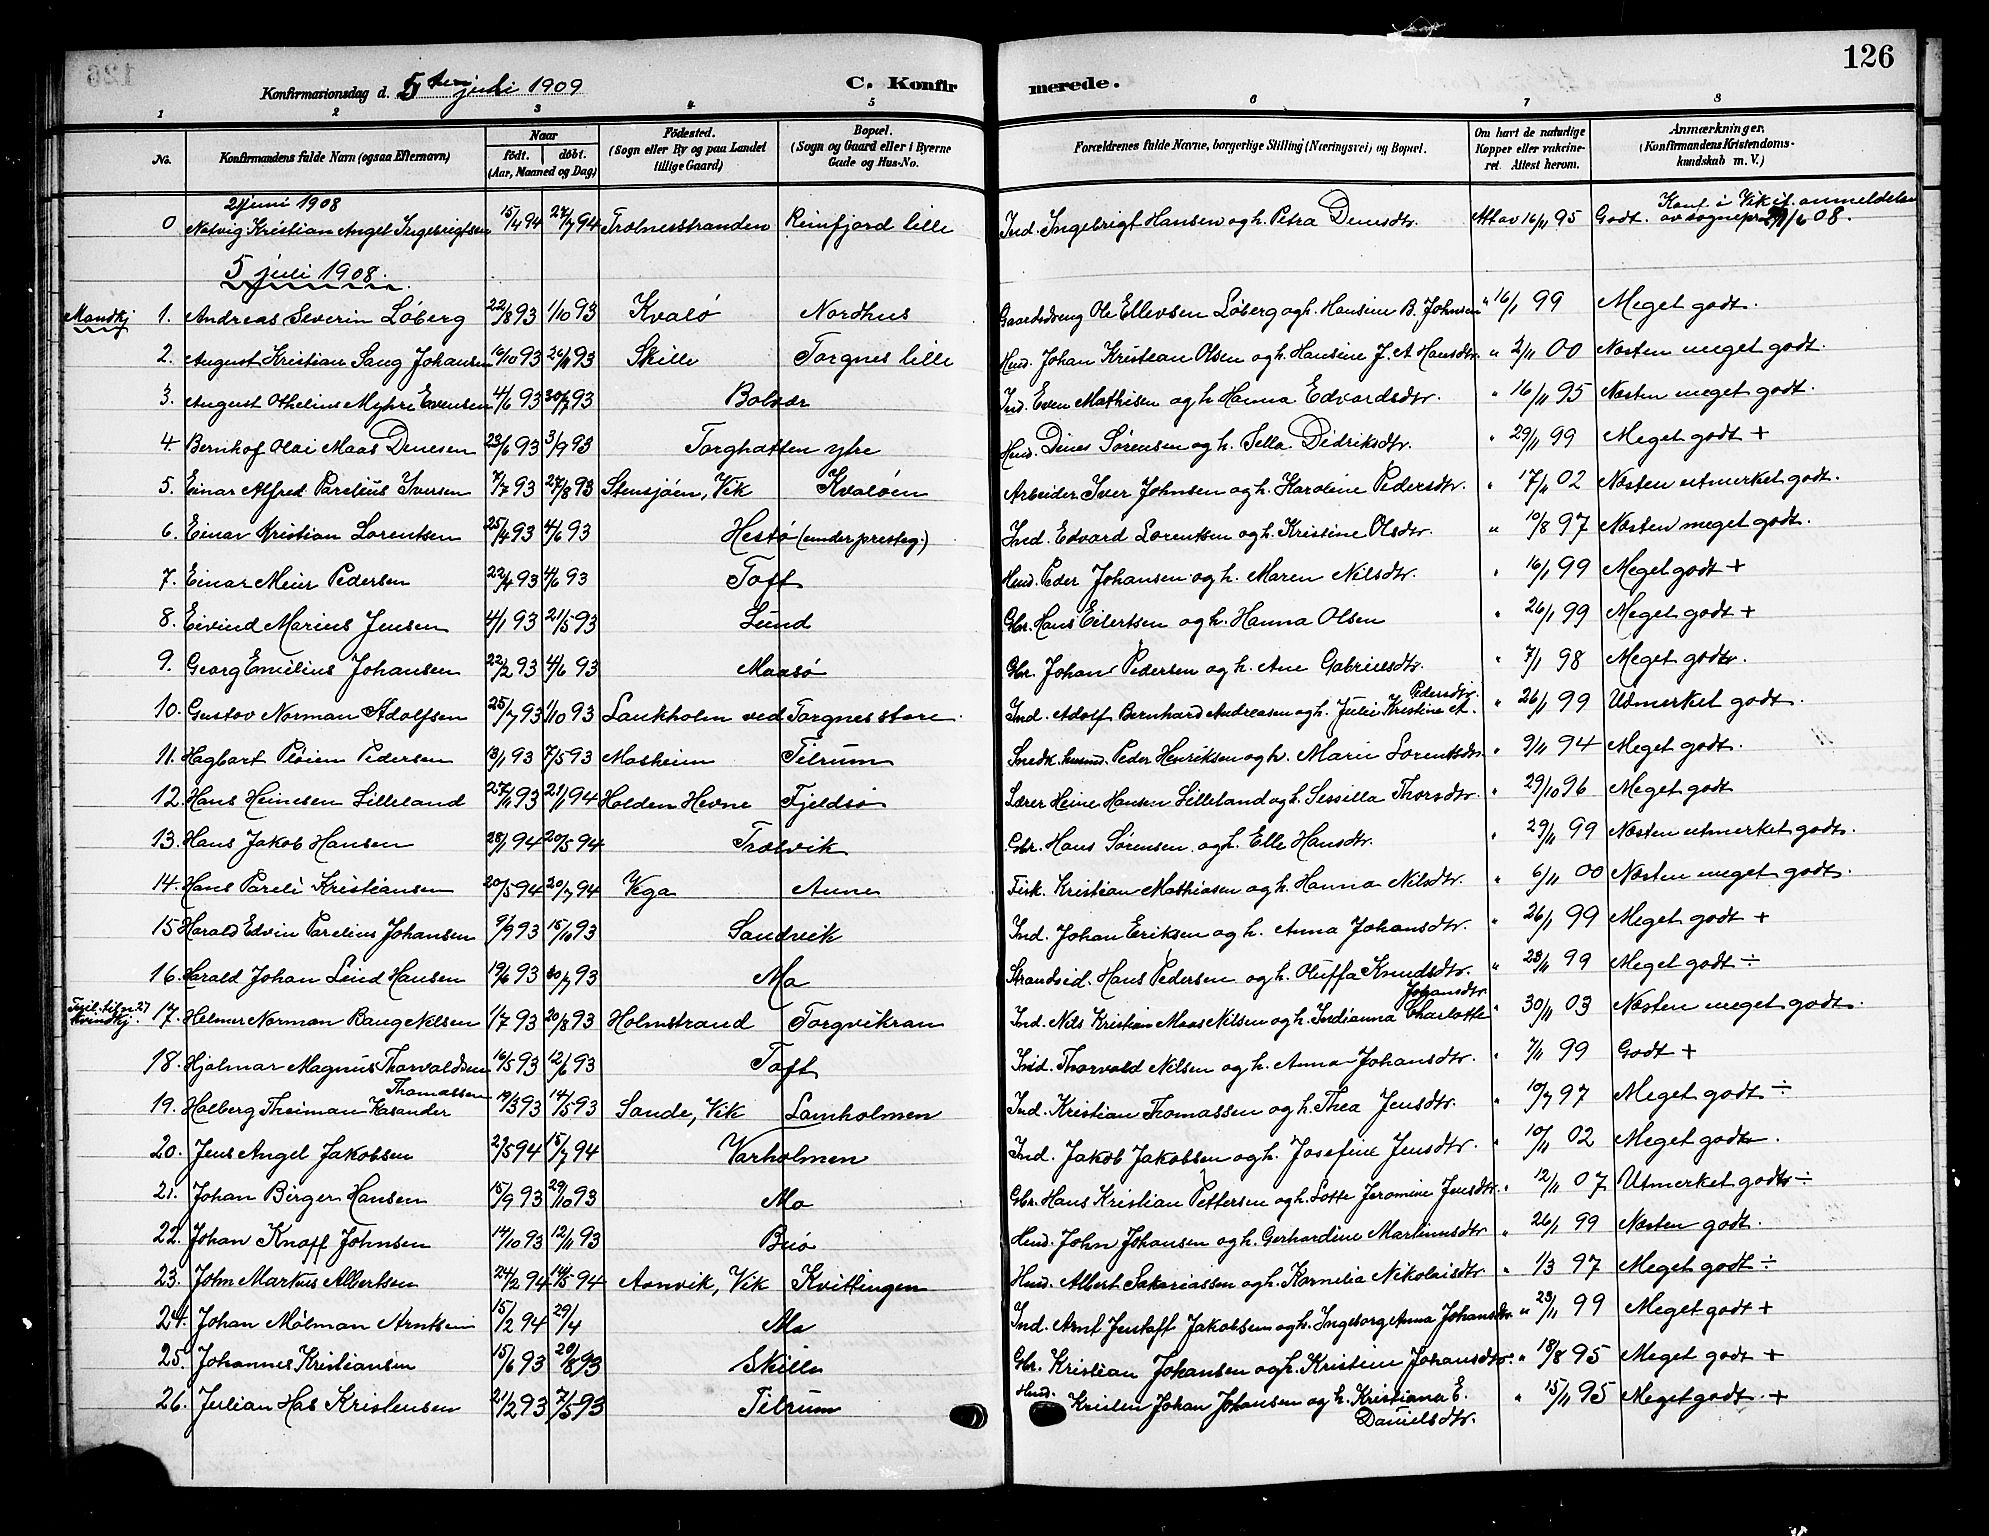 126
Konfirmationsdag d. 5te juli 1909 C. Konfirmerede.
1 2 3 4 5 6 7 8
No. Konfirmandens fulde Navn (ogsaa Efternavn) Naar födt. döbt. (Aar, Maaned og Dag) Födested. (Sogn eller By og paa Landet tillige Gaard) Bopæl. (Sogn og Gaard eller i Byerne Gade og Hus-No. Forældrenes fulde Navne, borgerlige Stilling (Næringsvei) og Bopæl. Om havt de naturlige Kopper eller vakcineret. Attest herom. Anmærkninger. (Konfirmandens Kristendomskundskab m. V.)
2 juni 1908
0 Natvig Kristian Angel Ingebrigtsen 15/4 94 27/7 94 Trælnesstranden Remfjord lille Ind. Ingebrigt Hansen og h. Petra Densdtr. Att av 16/11 95 Godt. Konf. i Vik if. anmeldelse av sognepr. 08.
5 juli 1908.
Mandkj 1. Andreas Severin Løberg 22/8 93 1/10 93 Kvalø Nordhus Gaardsdreng Ole Ellevsen Løberg og h. Hansine B. Johnsen " 16/1 99 Meget godt.
2. August Kristian Saug Johansen 16/10 93 26/11 93 Skille Torgnes lille Husd. Johan Kristian Olsen og h. Hansine J. A Hansdtr. " 2/11 00 Næsten meget godt.
3. August Othelius Myhre Evensen 4/6 93 30/7 93 Bolvær Ind. Even Mathisen og h Hanna Edvardsdtr. " 16/11 95 Næsten meget godt.
4. Bernhof Olai Maas Denesen 23/6 93 3/9 93 Torghatten ytre Husd. Dines Sørensen og h. Sella Didriksdtr. " 29/11 99 Meget godt +
5. Einar Alfred Parelius Iversen 7/7 93 27/8 93 Stensjøen, Vik Kvaløen Arbeider Iver Johnsen og h. Karoline Pedersdtr. " 17/11 02 Næsten utmerket godt.
6. Einar Kristian Lorentsen 25/4 93 4/6 93 Hestø (under presteg.) Ind. Edvard Lorentsen og h. Kristine Olsdtr. " 10/8 97 Næsten meget godt.
7. Einar Meier Pedersen 22/4 93 4/6 93 Toft Husd. Peder Johansen og h. Maren Nilsdtr. " 16/1 99 Meget godt +
8. Eivind Marius Jensen 4/1 93 21/5 93 Lund Gbr. Hans Eilertsen og h. Hanna Olsen " 26/1 99 Meget godt +
9. Georg Emilius Johansen 22/2 93 4/6 93 Maasø Gbr. Johan Pedersen og h. Ane Gabrielsdtr. " 7/1 98 Meget godt.
10. Gustav Norman Adolfsen 25/7 93 1/10 93 Lankholm ved Torgnes store. Ind. Adolf Bernhard Andreasen og h. Julie Kristine A. Pedersdtr. " 26/1 99 Udmerket godt.
11. Hagbart Pløien Pedersen 13/1 93 7/5 93 Masheim Tilrum Snedk. husmd. Peder Henriksen og h. Marie Lorentsdtr. " 9/11 94 Meget godt.
12. Hans Heinesen Lilleland 27/11 93 21/1 94 Holden Hevne Fjeldsø Lærer Heine Hansen Lilleland og h. Sessilla Thorsdtr. " 29/10 96 Meget godt
13. Hans Jakob Hansen 28/1 94 20/5 94 Trælvik Gbr. Hans Sørensen og h. Elle Hansdtr. " 29/11 99 Næsten utmerket godt.
14. Hans Pareli Kristiansen 20/5 94 20/7 94 Vega Aune Fisk. Kristian Mathiasen og h. Hanna Nilsdtr. " 6/11 00 Næsten meget godt.
15 Harald Edvin Parelius Johansen 9/9 93 15/10 93 Sandvik Ind. Johan Eriksen og h. Anna Johansdtr. " 26/1 99 Meget godt +
16. Harald Johan Lind Hansen 19/6 93 30/7 93 Mo Strandsid. Hans Pedersen og h. Oluffa Knudsdtr. " 23/11 99 Meget godt ÷
17. Helmer Norman Bang Nilsen 1/7 93 20/8 93 Holmstrand Torgvikran Ind. Nils Kristian Maas Nilsen og h. Indianna Charlotte Johansdtr. " 30/11 03 Næsten meget godt.
18. Hjalmar Magnus Thorvaldsen 16/5 93 12/6 93 Toft Ind. Thorvald Nilsen og h. Anna Johansdtr. " 7/11 99 Godt +
19. Holberg Theiman Kasander Thomassen 19/3 93 14/5 93 Sande, Vik Lamholmen Ind. Kristian Thomassen og h. Thea Jensdtr. " 10/7 97 Meget godt ÷
20. Jens Angel Jakobsen 29/5 94 15/7 94 Varholmen Ind. Jakob Jakobsen og h. Josefine Jensdtr. " 10/11 02 Meget godt.
21. Johan Birger Hansen 15/9 93 29/10 93 Mo Gbr. Hans Kristian Pettersen og h. Lotte Jeromine Jensdtr. " 12/11 07 Utmerket godt ÷
22. Johan Knoff Johnsen 14/10 93 12/11 93 Buø Husd. John Johansen og h. Gerhardine Martinusdtr " 26/1 99 Næsten godt.
23. John Martius Albertsen 24/2 94 14/5 94 Aanvik, Vik Kvittingen Husd. Albert Sakariassen og h. Kornelia Nikolaisdtr " 1/3 97 Meget godt ÷
24. Johan Mølman Arntsen 15/2 94 29/4 Mo Ind. Arnt Jentoft Jakobsen og h. Ingeborg Anna Johansdtr. " 23/11 99 Meget godt +
25. Johannes Kristiansen 15/6 93 20/8 93 Skille Gbr. Kristian Johansen og h. Kristine Johansdtr. " 18/8 95 Meget godt +
26. Julian Has Kristensen 21/2 93 7/5 93 Tilrum Husd. Kristen Johan Johansen og h. Kristiana E. Danielsdtr. " 15/11 95 Meget godt. +